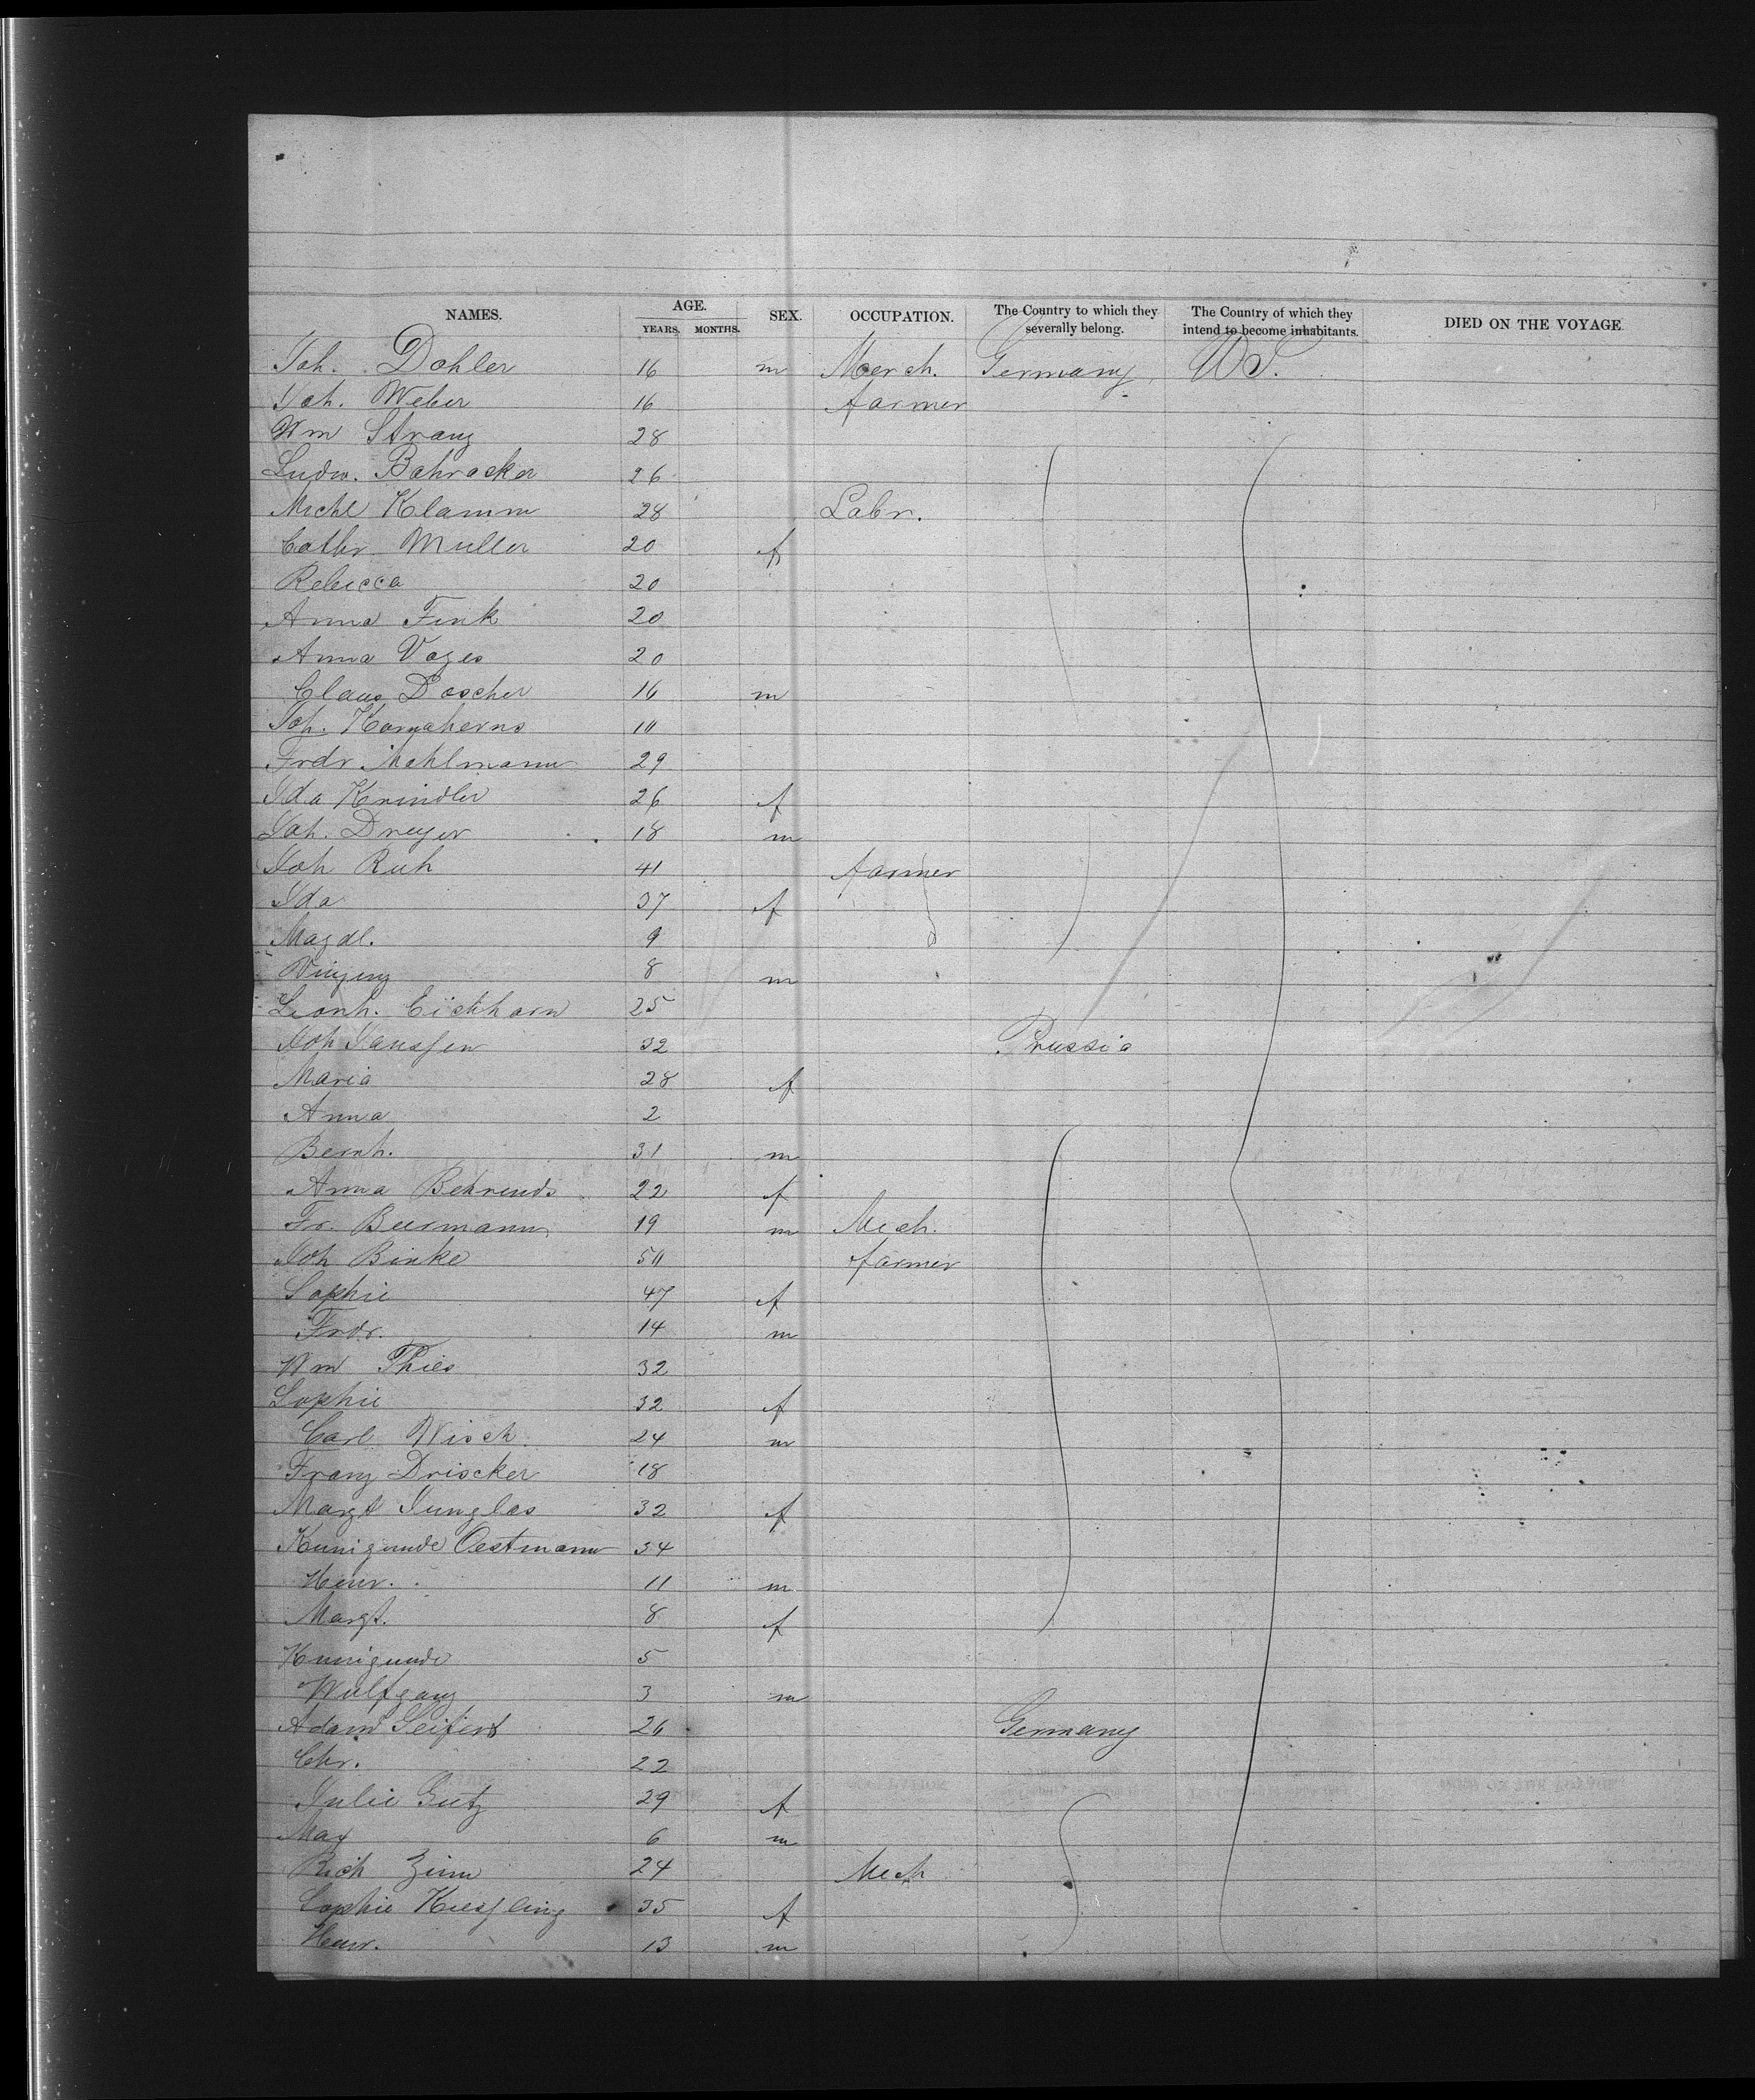 NAMES. AGE. YEARS. MONTHS. SEX. OCCUPATION. The Country to which they severally belong. The Country of which they intend to become inhabitants. DIED ON THE VOYAGE.
Joh. Dohler 16 m Merch. Germany U.S.
Joh. Weber 16 farmer
Wm Stranz 28
Ludw. Bahracker 26
Michl Klamm 28 Labr.
Cathr Muller 20 f
Rebecca 20
Anna Fink 20
Anna Voges 20
Claus Doscher 16 m
Joh.
Frdr Mahlmann 29
Ida Krindler 26 f
Joh. Dreyer 18 m
Joh Ruh 41 farmer
Ida 37 f
Magdl. 9
8 m
Leonh. Eichhorn 25
Joh Janssen 32 Prussia
Maria 28 f
Anna 2
Bernh. 31 m
Anna Behrends 22 f
Fr. Beermann 19 m Mech.
Joh Binke farmer
Sophie 47 f
Frdr. 14 m
Wm Thies 32
Sophie 32 f
Carl Wisch 24 m
Franz Driocker 18
Margt Junglas 32 f
Kunigunde Oestmann 34
Henr. 11 m
Margt. 8 f
Kunigunde 5
Wulfgang 3 m
Adam Seifert 26 Germany
Chr. 22
Julie Gutz 29 f
Max 6 m
Rich Zinn 24 Mech
Sophie Kiessling 35 f
Henr. 13 m